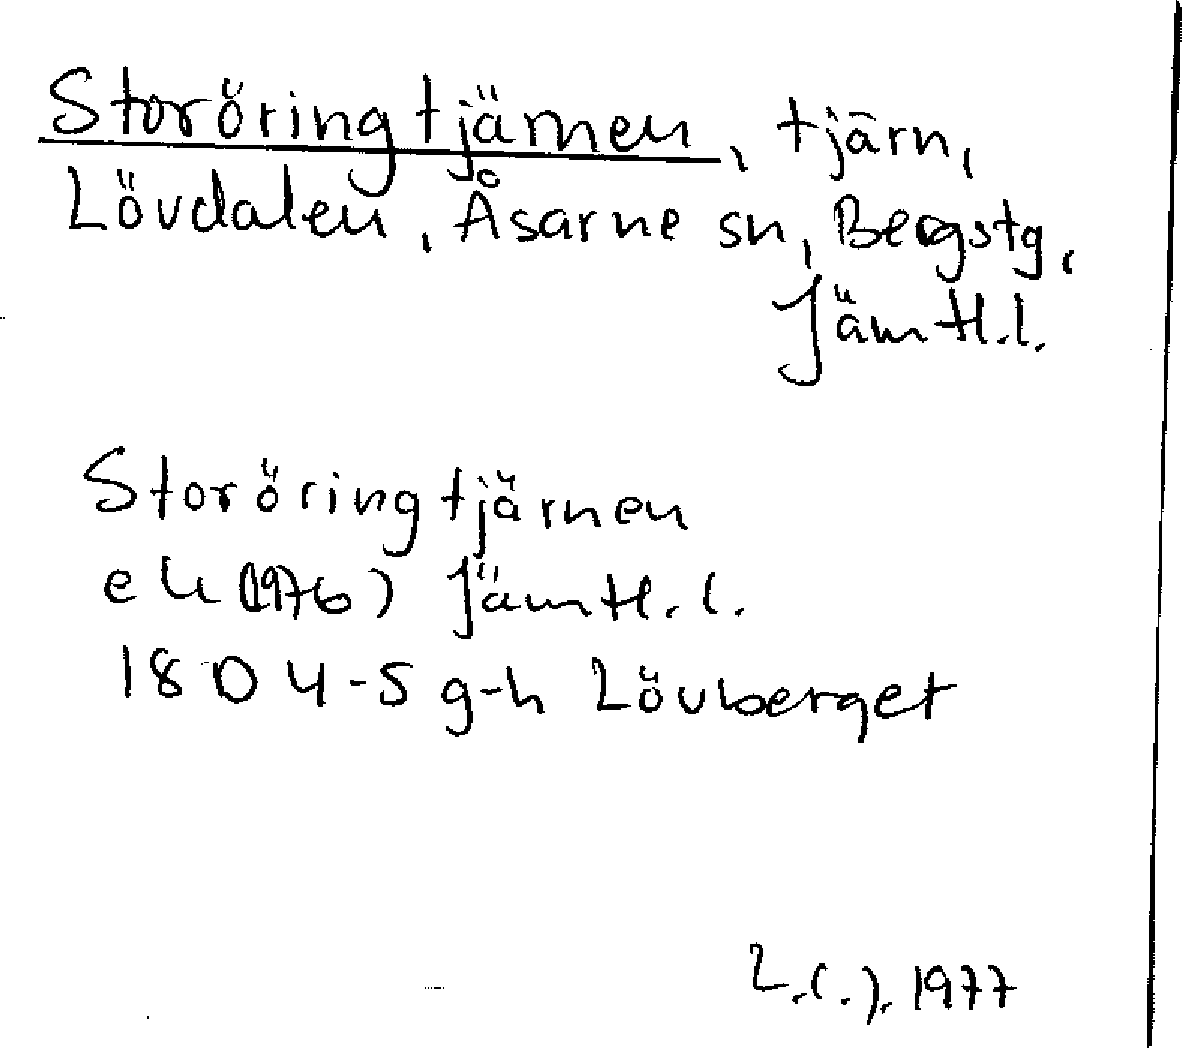 Storöringtjärnen, tjärn,
Lövdalen, Åsarne sn, Bergstg,
Jämtl.l.
Storöringtjärnen
ek (1976) Jämtl.l.
18D 4-5 g-h Lövberget
1977